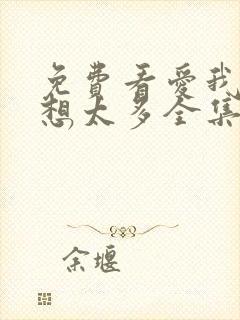 免費看愛我
想太多全集
余堰